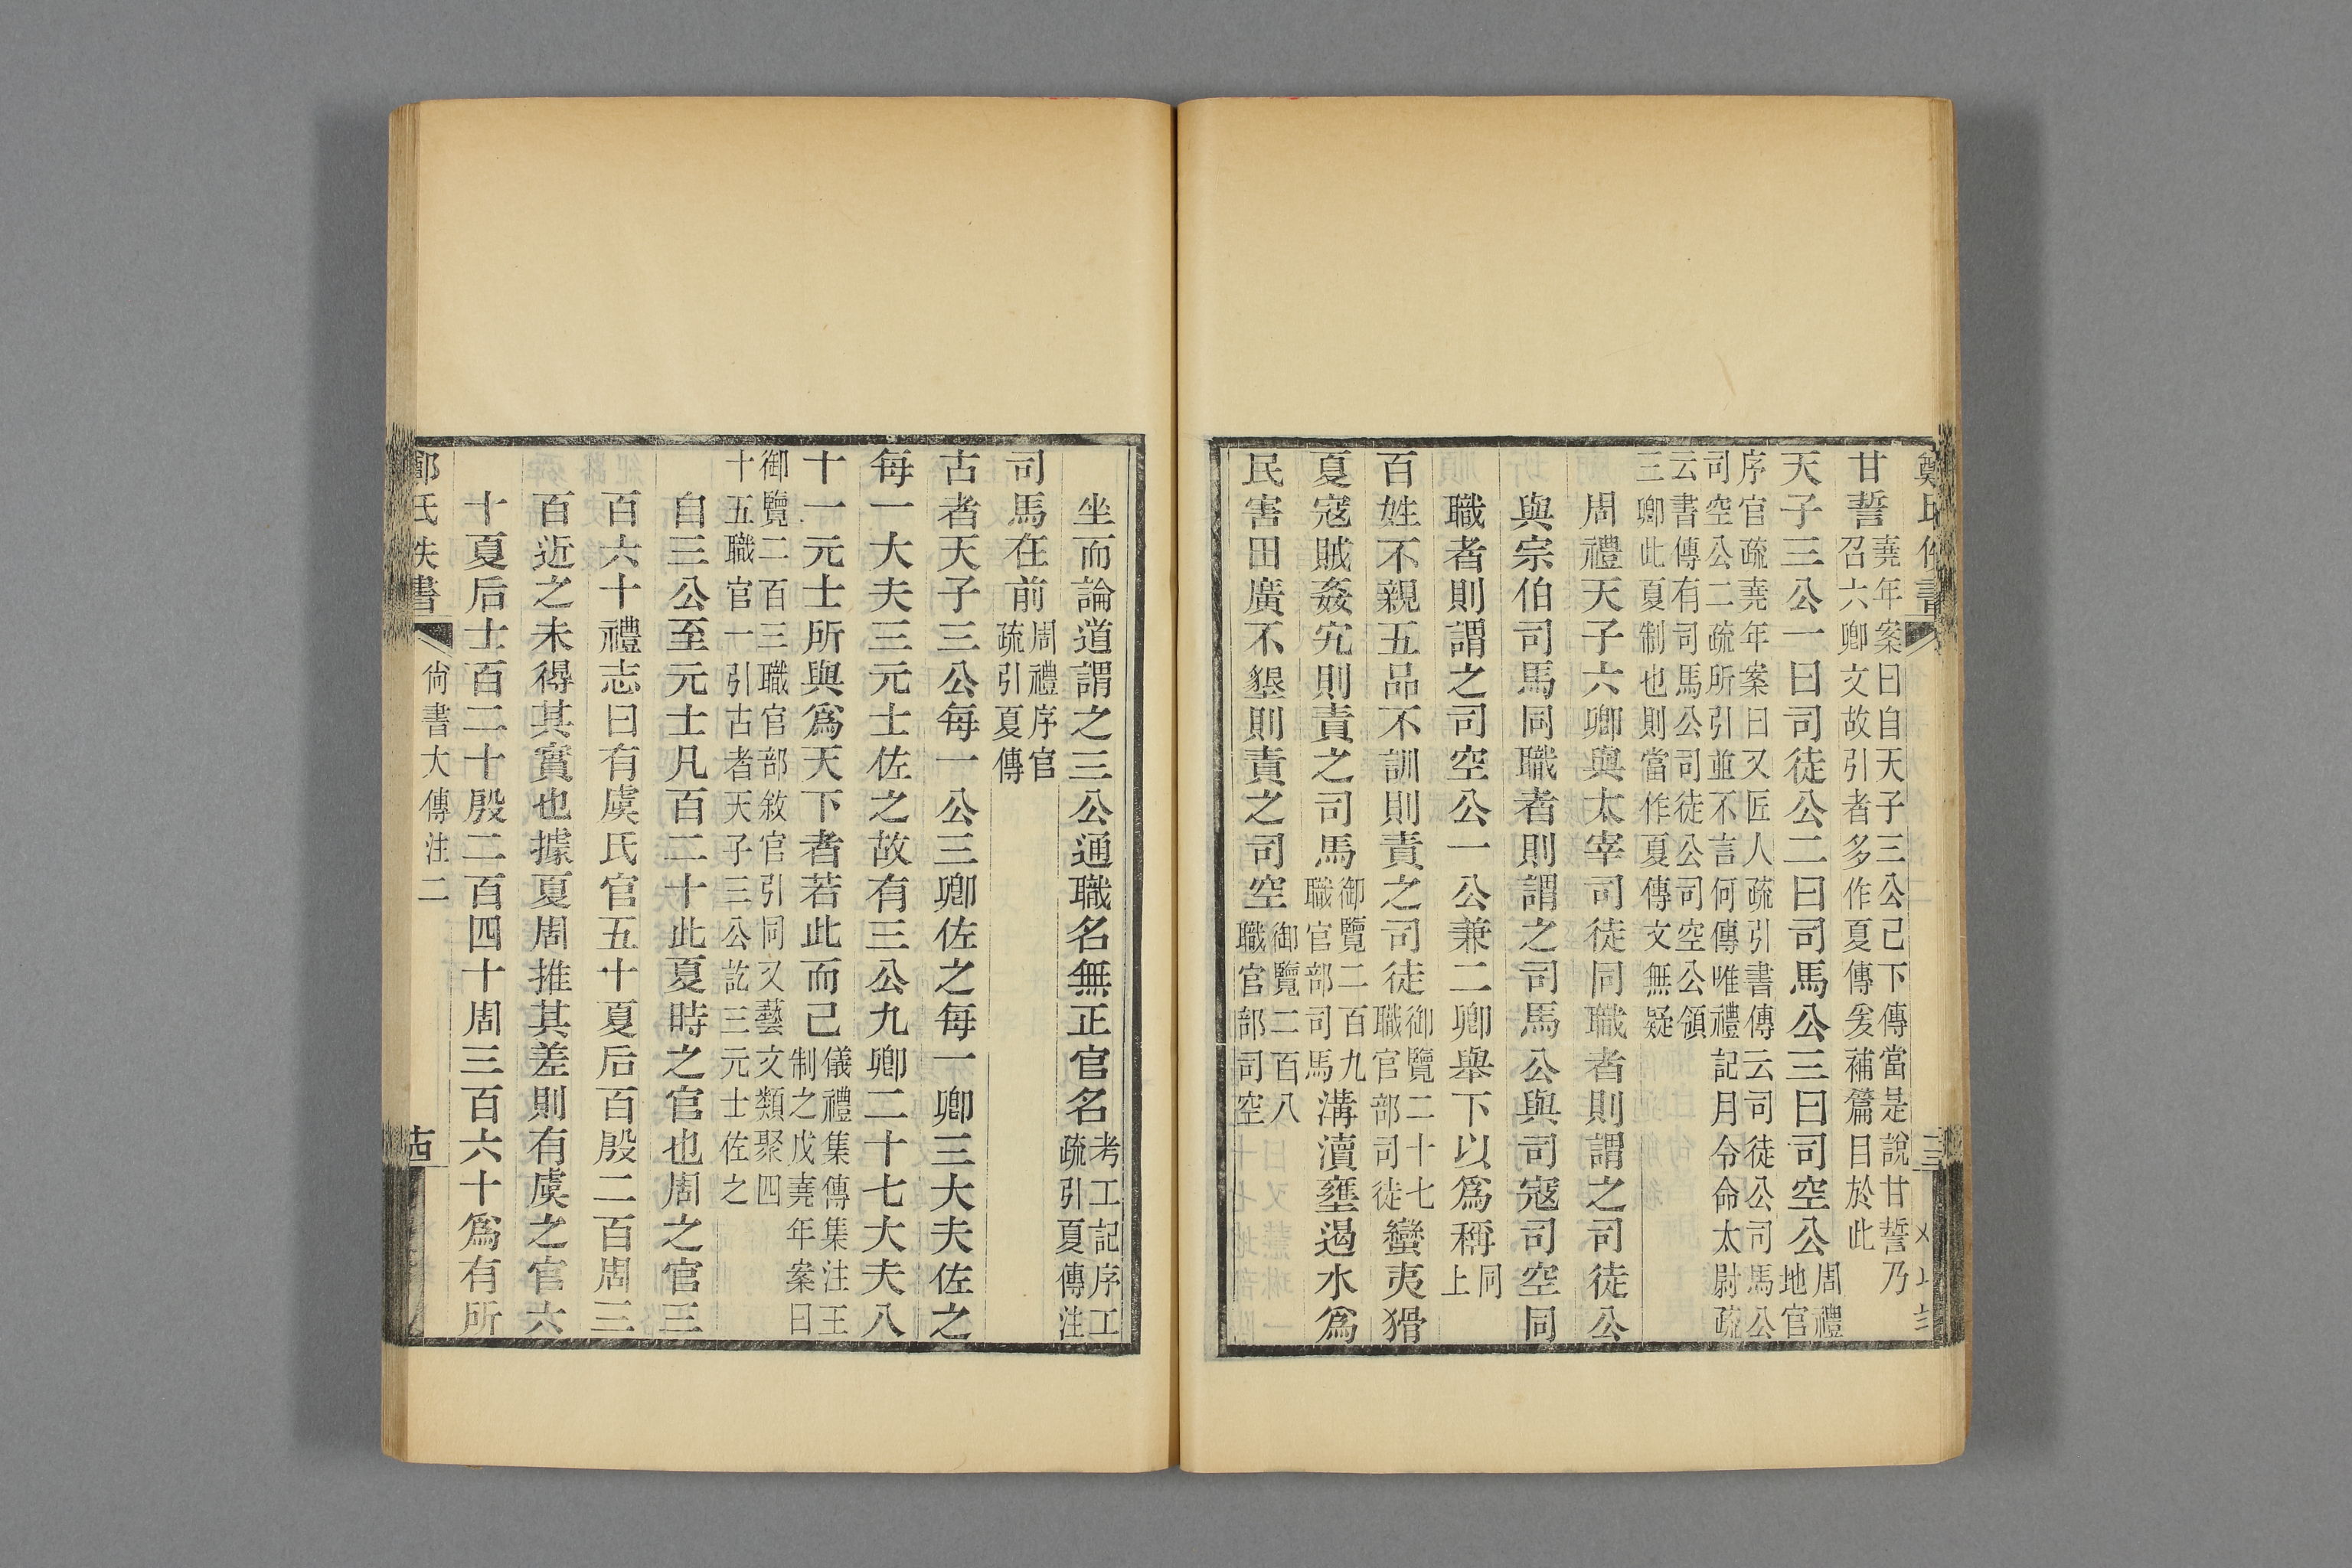 甘誓堯年案曰自天子三公己下傳當是說甘誓乃
召六卿文故引者多作夏傳爰補篇目於此
天子三公一曰司徒公二曰司馬公三曰司空公周禮
地官
序官疏堯年案曰又匠人疏引書傳云司徒公司馬公
司空公二疏所引並不言何傳唯禮記月令命太尉疏
云書傳有司馬公司徒公司空公領
三卿此夏制也則當作夏傳文無疑
周禮天子六卿與太宰司徒同職者則謂之司徒公
與宗伯司馬同職者則謂之司馬公與司寇司空同
職者則謂之司空公一公兼二卿舉下以爲稱同
上
百姓不親五品不訓則責之司徒御覽二十七
職官部司徒
蠻夷猾
夏寇賊姦宄則責之司馬御覽二百九
職官部司馬
溝瀆壅遏水爲
民害田廣不墾則責之司空御覽二百八
職官部司空
坐而論道謂之三公通職名無正官名考工記序工
疏引夏傳注
司馬在前周禮序官
疏引夏傳
古者天子三公每一公三卿佐之每一卿三大夫佐之
每一大夫三元士佐之故有三公九卿二十七大夫八
十一元士所與爲天下者若此而己儀禮集傳集注王
制之戊堯年案曰
御覽二百三職官部敘官引同又藝文類聚四
十五職官一引古者天子三公訖三元士佐之
自三公至元士凡百二十此夏時之官也周之官三
百六十禮志曰有虞氏官五十夏后百殷二百周三
百近之未得其實也據夏周推其差則有虞之官六
十夏后士百二十殷二百四十周三百六十爲有所
鄭氏佚書 尙書大傳注二 十四